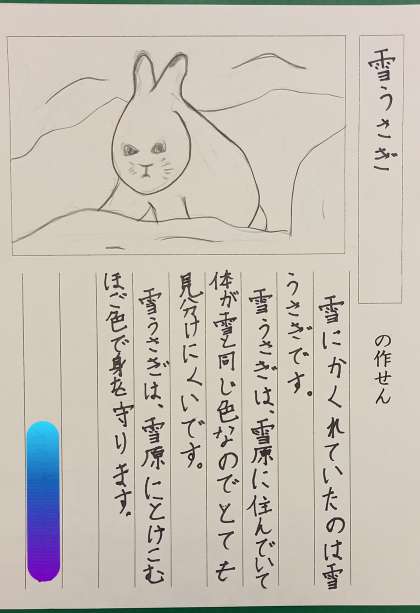 雪うさぎ
の作せん
雪にかくれていたのは雪
うさぎです。
雪うさぎは、雪原に住んでいて
体が雪と同じ色なのでとても
見分けにくいです。
雪うさぎは、雪原にとけこむ
ほご色で身を守ります。